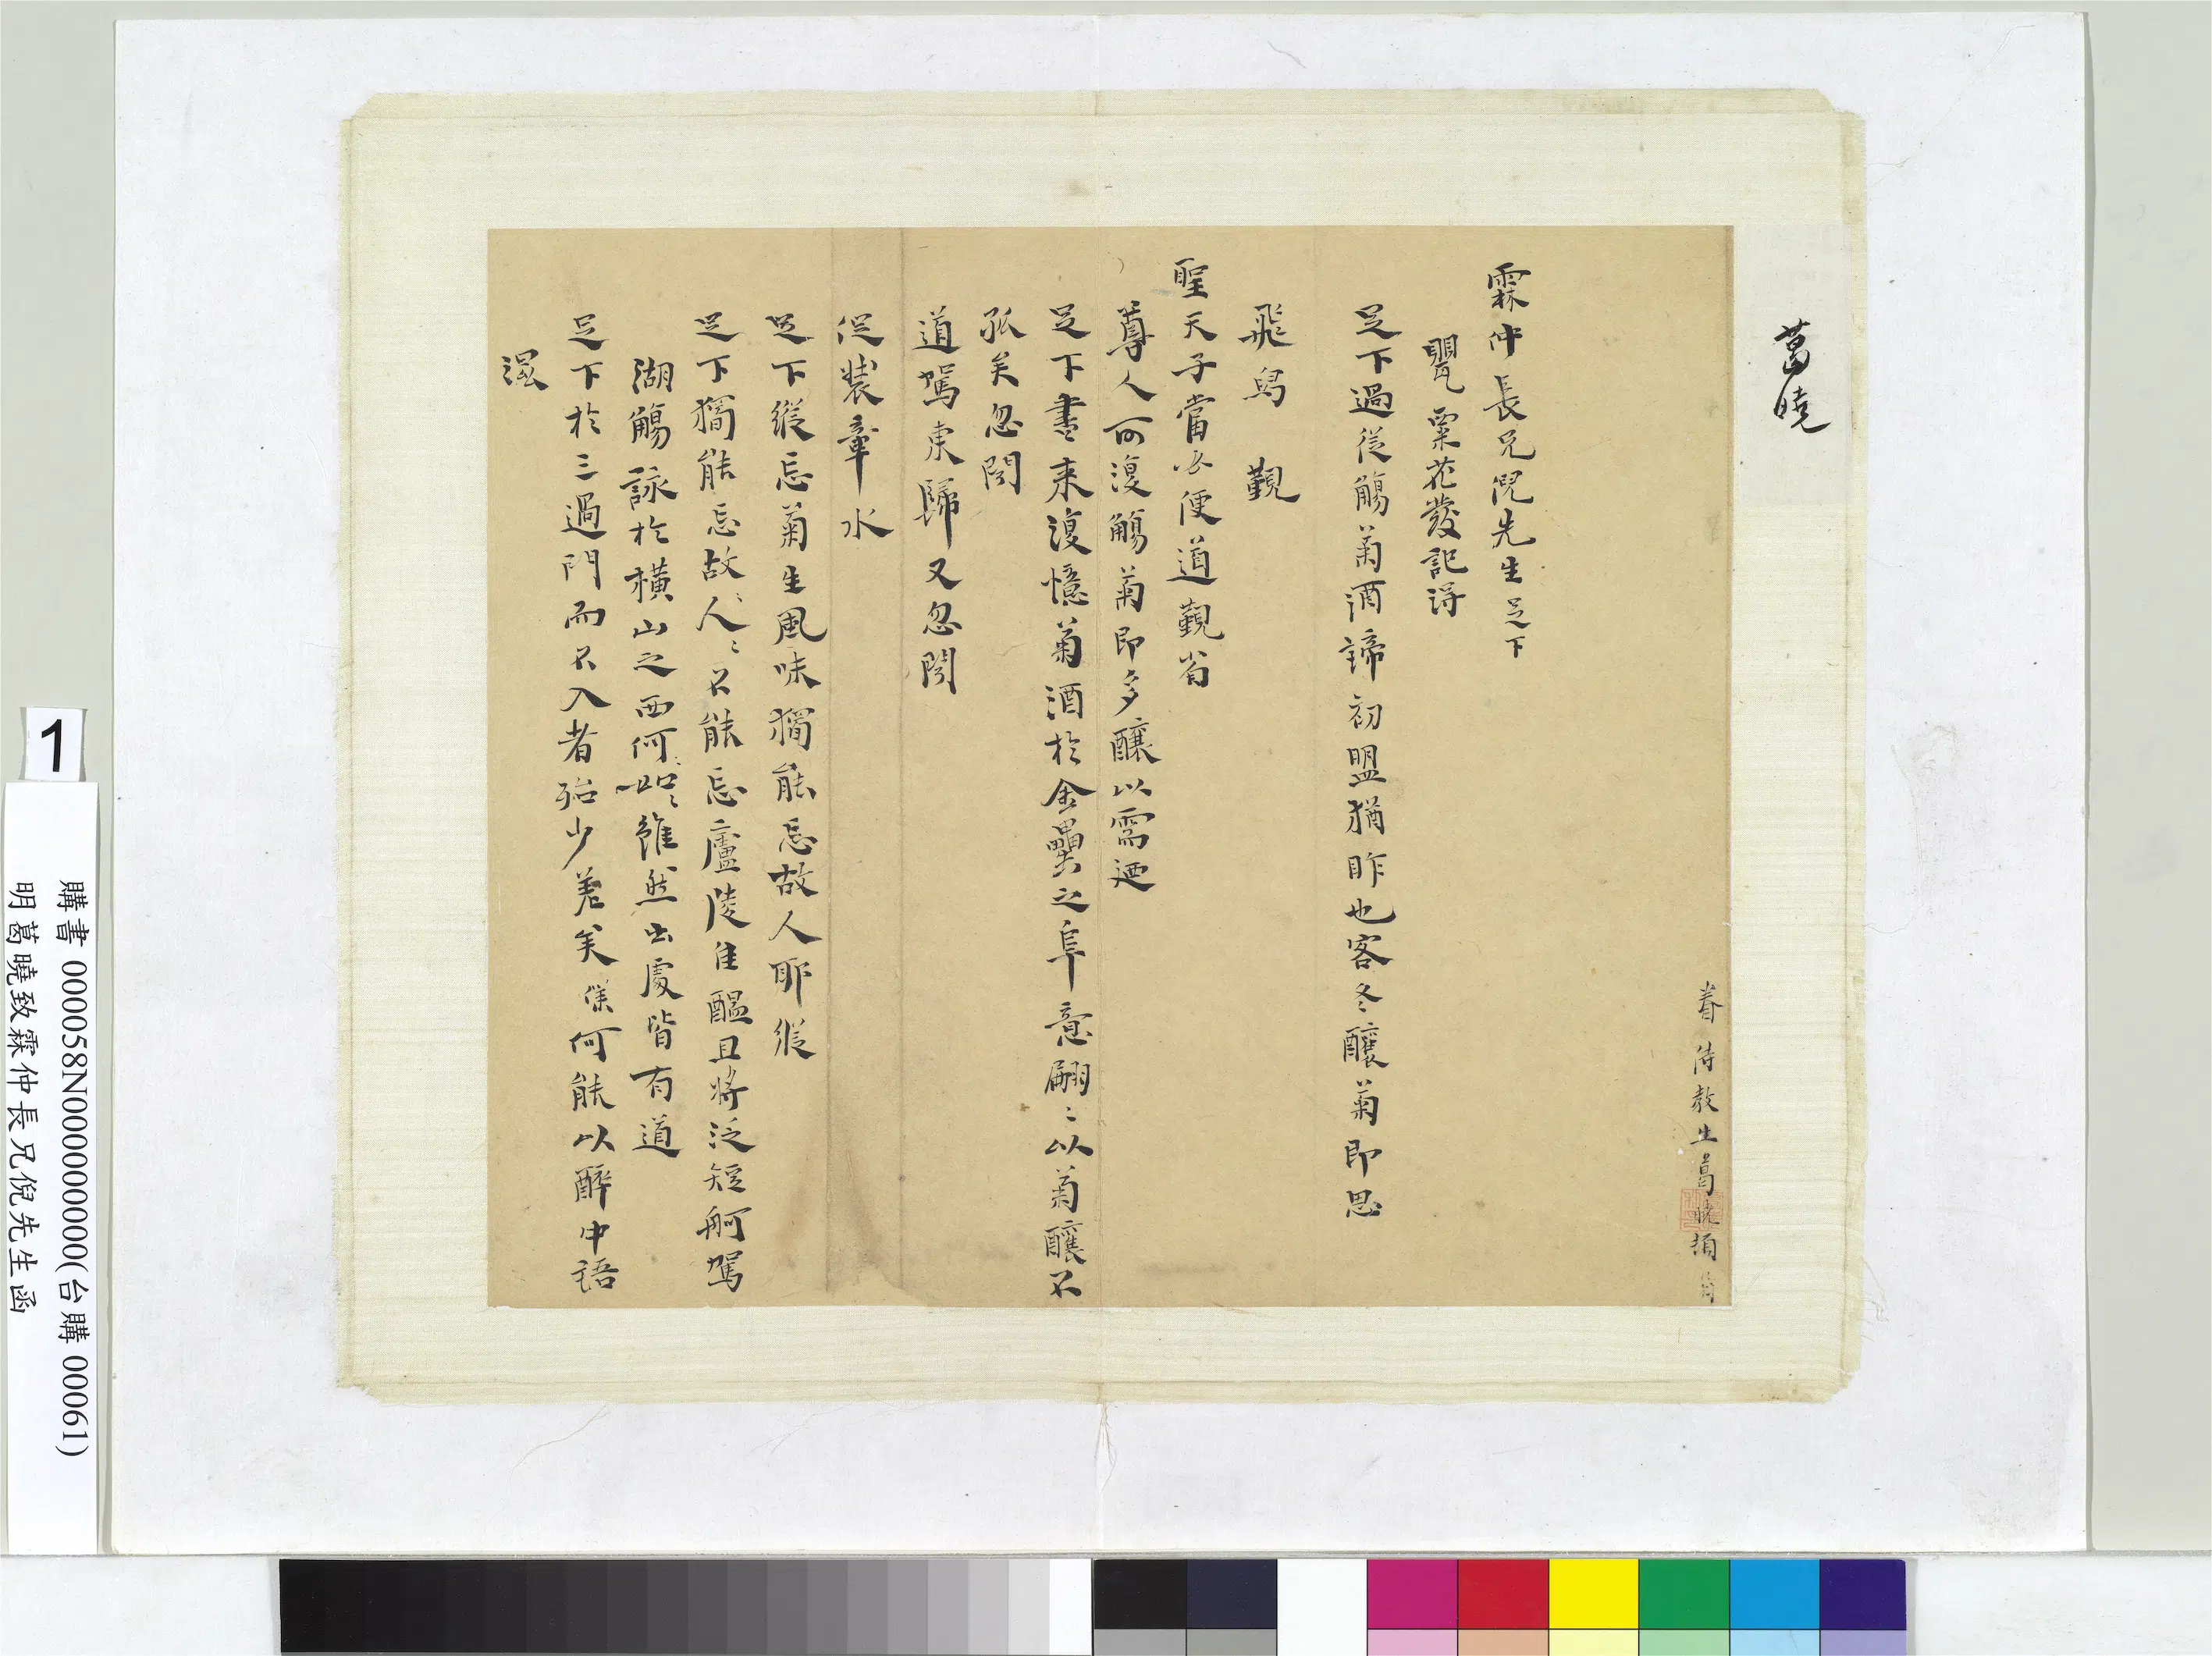 葛曉
眷侍教生葛曉頓首
霖仲長兄倪先生足下
甖粟花發記得
足下過從觴菊酒諦初盟猶昨也客冬釀菊即思
飛舄覲
聖天子當必便道覲省
尊人可復觴菊即多釀以需迺
足下書来復憶菊酒於金罍之阜意翩〻以菊釀不
孤矣忽閱
道駕東歸又忽閱
促裝章水
足下縱忘菊生風味獨能忘故人耶縱
足下獨能忘故〻人〻不能忘廬陵佳醞且將泛短舸駕
湖觴詠於橫山之西何〻如〻雖然出處皆有道
足下於三過門而不入者殆少差矣僕何能以醉中語
溷
1
購書 000058N000000000(台購 00061)
明葛曉致霖仲長兄倪先生函